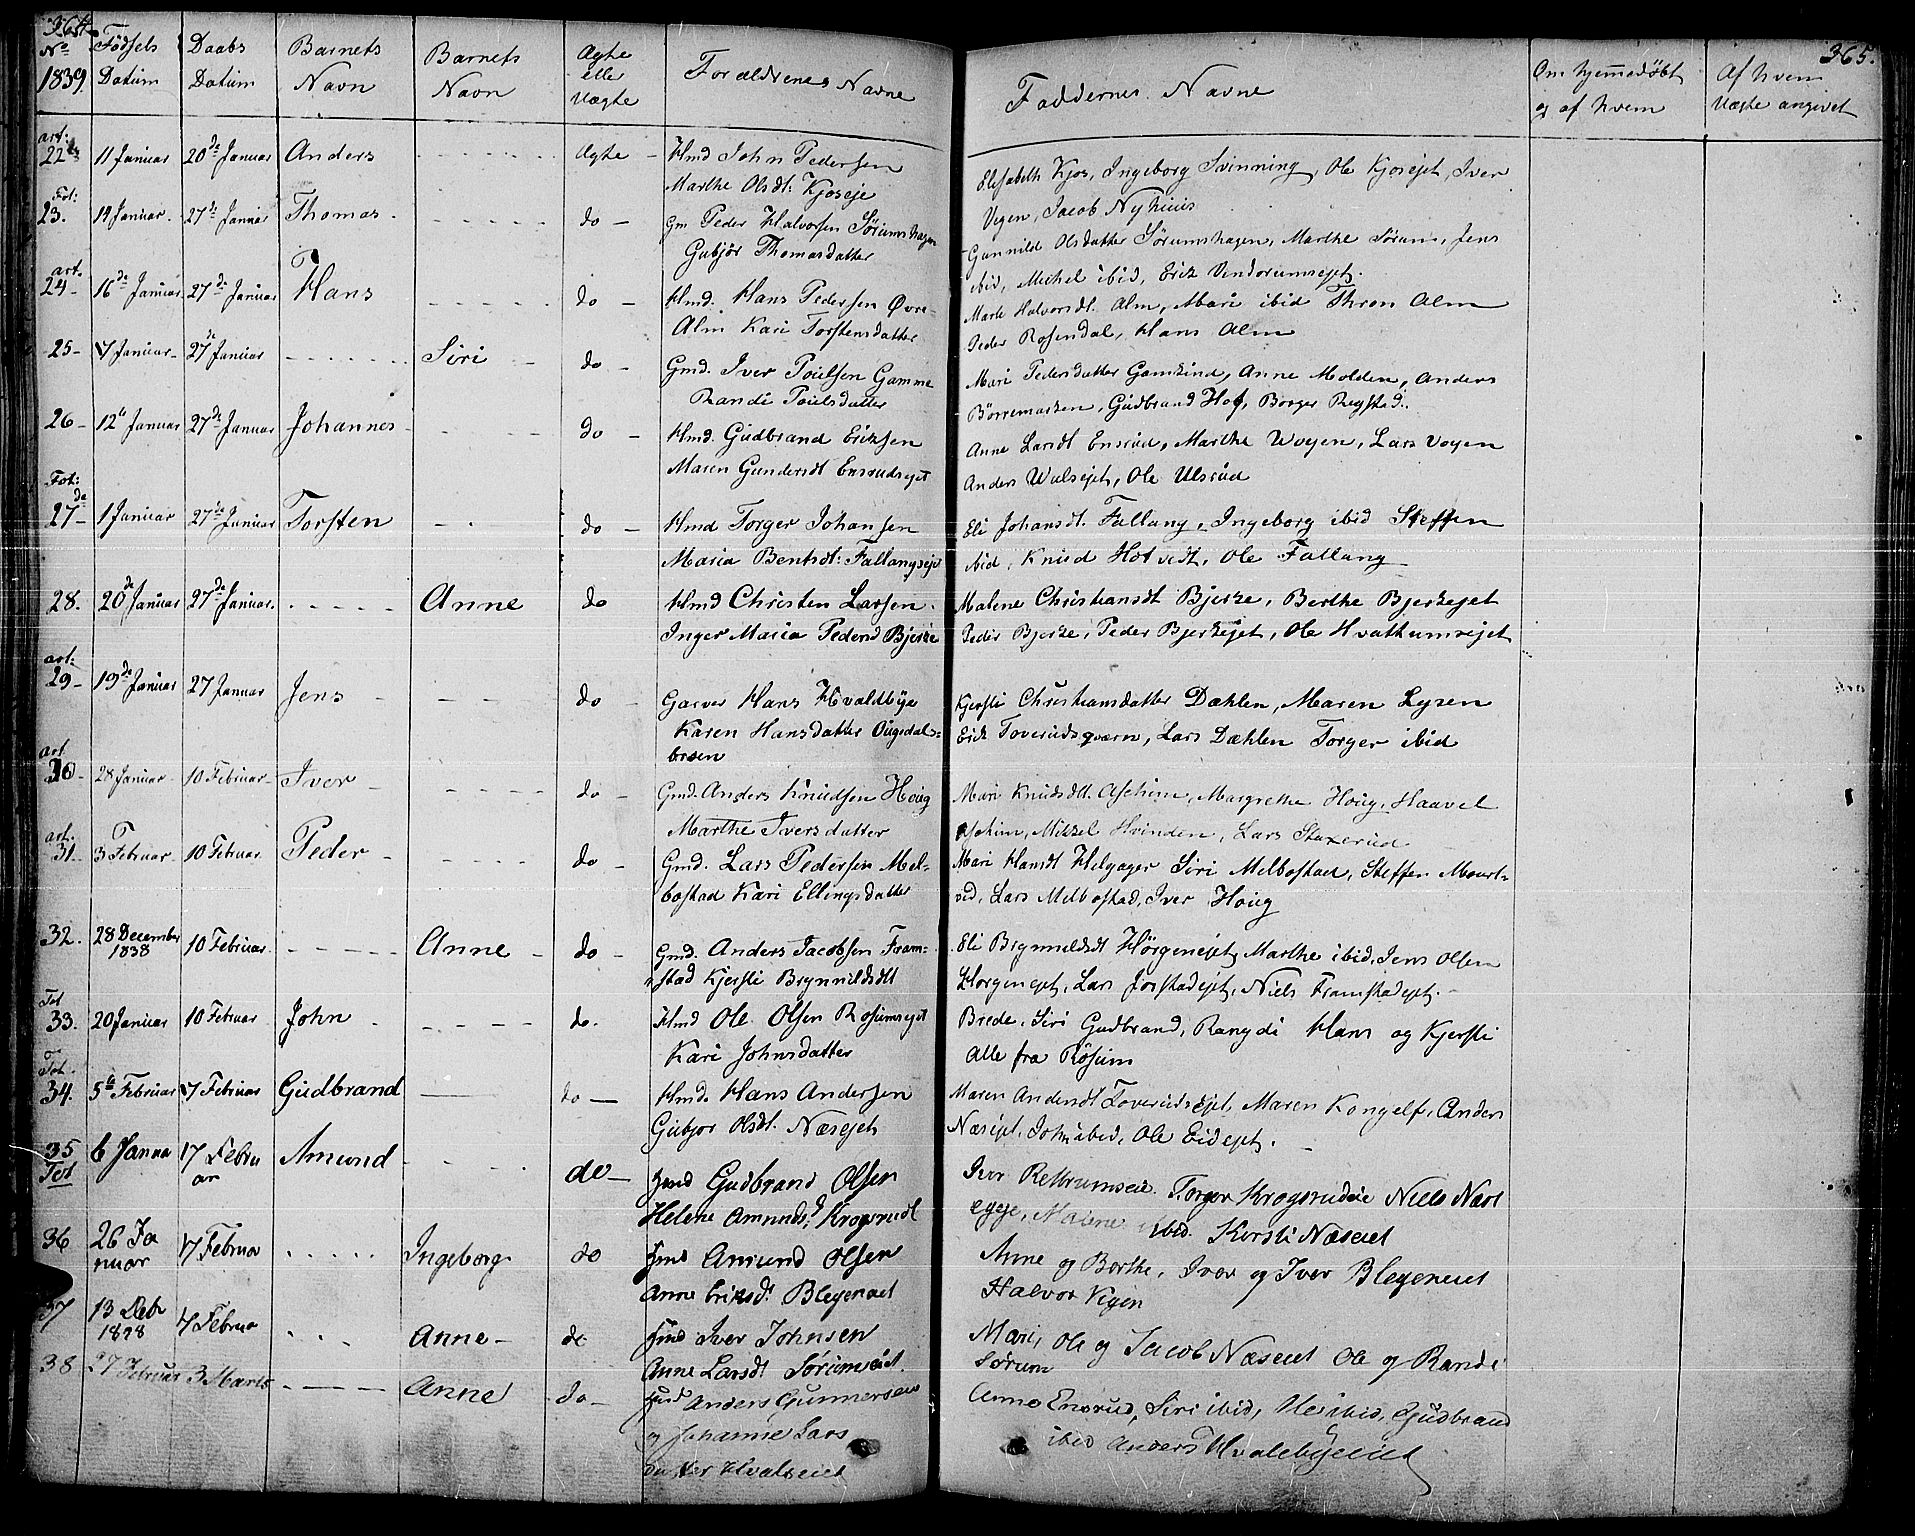 364.
No 1839 Fødsels Datum Daabs Datum Barnets Navn Barnets Navn Ægte eller Uægte Forældrenes Navne
art: 22 11 Januar 20de Januar Anders Ægte Hmd John Pedersen
Marthe Olsdt: Kjoseje
Fot: 23. 14 Januar 27de Januar Thomas do Gm Peder Halvorsen Sørumshagen
Gubjør Thomasdatter
art. 24 16de Januar 27de Januar Hans do Hmd. Hans Pedersen Øvre
Alm Kari Torstensdatter
25 7 Januar 27de Januar Siri do Gmd. Iver Poulsen Gamme
Randi Poulsdatter
26 12te Januar 27de Januar Johannes do Hmd. Gudbrand Eriksen
Maren Gundersdt Ensrudsejet
Fot: 27 1de Januar 27de Januar Torsten do Hmd Torger Johansen
Maria Bentsdt: Fallangseje
28. 20de Januar 27de Januar. Anne do Hmd Christen Larsen
Inger Maria Pedersd Bjerke
art: 29 19de Januar 27 Januar Jens do Garver Hans Hvaldbye
Karen Hansdatter
art 30 28 Januar 10 Februar Iver do Gmd. Anders Knudsen Houg
Marthe Iversdatter
art. 31. 3 Februar 10 Februar Peder do Gmd. Lars Pedersen Mel-
bostad Kari Ellingsdatter
32. 28 December 1838 10 Februar Anne do Gmd. Anders Jacobsen Fram-
stad Kjersti Brynnildsdt
Fot 33. 20 Januar 10 Februar John do. Hmd Ole Olsen Rosumsejet
Kari Johnsdatter
Fot. 34. 5te Februar 17 Februar Gudbrand do Hmd. Hans Andersen
Gubjor Olsdt. Næsejet
35 Fot 6 Janua 17 Februar Amund do Hmd Gudbrand Olsen
Helene Amundsd Krogsrudt
36 26 Januar 17 Februa Ingeborg do Hmd Amund Olsen
Anne Eriksdt Blegeneiet
37 13 Debr 17 Februa Anne do Hmd Iver Johnsen
Anne Larsdt Sørumseiet
38 Februar 3 Marts Anne do Hmd Anders Gunnersen
og Johanne Lars
datter Hvalseiet
365.
Faddernes Navne Om hjemmedøbt og af hvem Af hvem Uægte angivet
Elisabeth Kjos, Ingeborg Svinning, Ole Kjosejet, Iver
Vegen, Jacob Nyhuus
Gunnild Olsdatter Sørumshagen, Marthe Sørum, Jens
ibid, Michel ibid, Erik Vendorumsejet.
Marte Halvorsdt. Alm, Mari ibid Thron Alm
Peder Rosendal, Hans Alm
Mari Pedersdatter Gamkind, Anne Molden, Anders
Børremarken, Gudbrand Hof, Borger Regstad.
Anne Larsdt Ensrud, Marthe Woyen, Lars Voyen
Anders Wulsejet, Ole Ulsrud
Eli Johansdt. Fallang, Ingeborg ibid Steffen
ibid, Knud Hotvedt, Ole Fallang
Malene Christiansdt Bjerke, Berthe Bjerkejet
Peder Bjerke, Peder Bjerkejet, Ole Hvattumsejet
Kjersti Christiansdatter Dæhlen, Maren Lysen
Erik Toverudsqværn, Lars Dæhlen Torger ibid
Mari Knudsdtt. Aschim, Margrethe Houg, Haavel
Aschim, Mikkel Hvinden, Lars Staxerud
Mari Hansdt Helgager Siri Melbostad, Steffen
Lars Melbostad, Iver Houg
Eli Brynnildsdt Hørgenejet, Marthe ibid, Jens Olsen
Horgenejet, Lars Jorstadejet, Niels Framstadejet.
Brede, Siri Gudbrand, Rangdi Hans og Kjersti
Alle fra Røsum
Maren Andersdt Toverudsejet, Maren Kongelf, Anders
Næsejet, John ibid, Ole Eidejet.
Iver Rettrumseie. Torger Krogsrudeie Niels Næs
egeje, Malene ibid. Kersti Næseiet
Anne og Berthe, Iver og Iver Blegeneiet
Halvor Vegen
Mari, Ole og Jacob Næseiet Ole og Randi
Sørum
Anne Ensrud, Siri ibid, Ole ibid, Gudbrand
ibid Anders Hvalebyeeiet